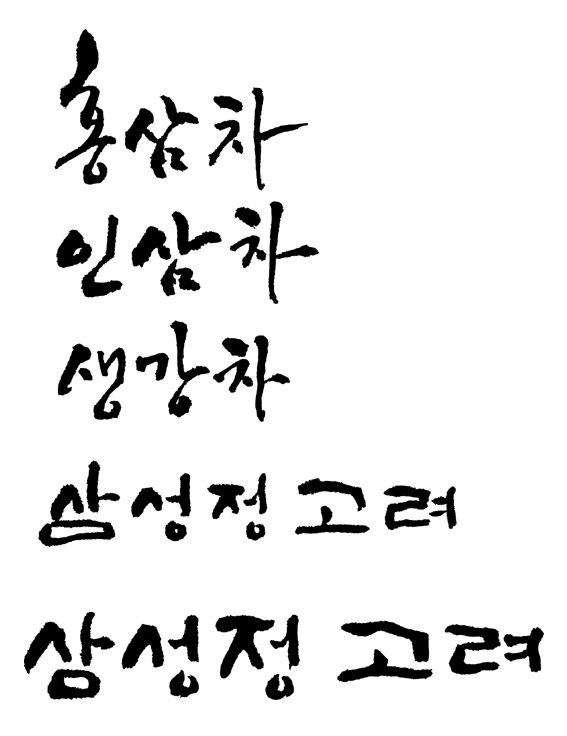 홍삼차
인삼차
생강차
삼성정 고려
삼성정 고려